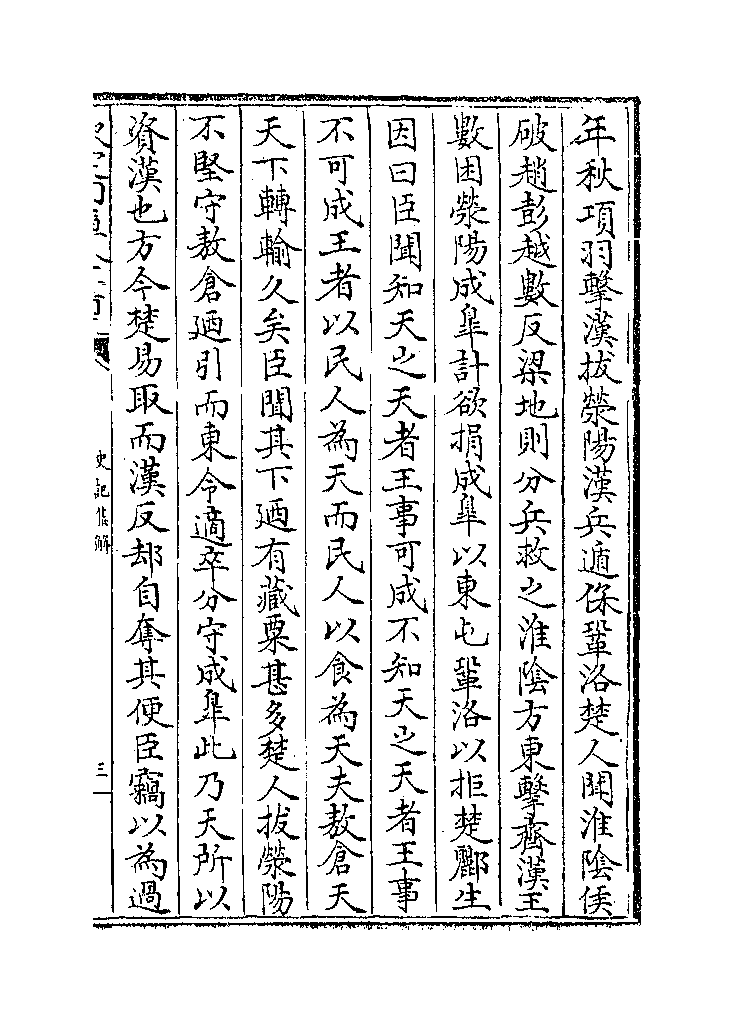 年秋項羽擊漢拔滎陽漢兵遁保鞏洛楚人聞淮陰侯
破趙彭越數反梁地則分兵救之淮陰方東擊齊漢王
數困滎陽成臯計欲捐成臯以東屯鞏洛以拒楚酈生
因曰臣聞知天之天者王事可成不知天之天者王事
不可成王者以民人為天而民人以食為天夫敖倉天
天下轉輸久矣臣聞其下廼有藏粟甚多楚人拔滎陽
不堅守敖倉廼引而東令適卒分守成臯此乃天所以
資漢也方今楚易取而漢反却自奪其便臣竊以為過
史記集解
三